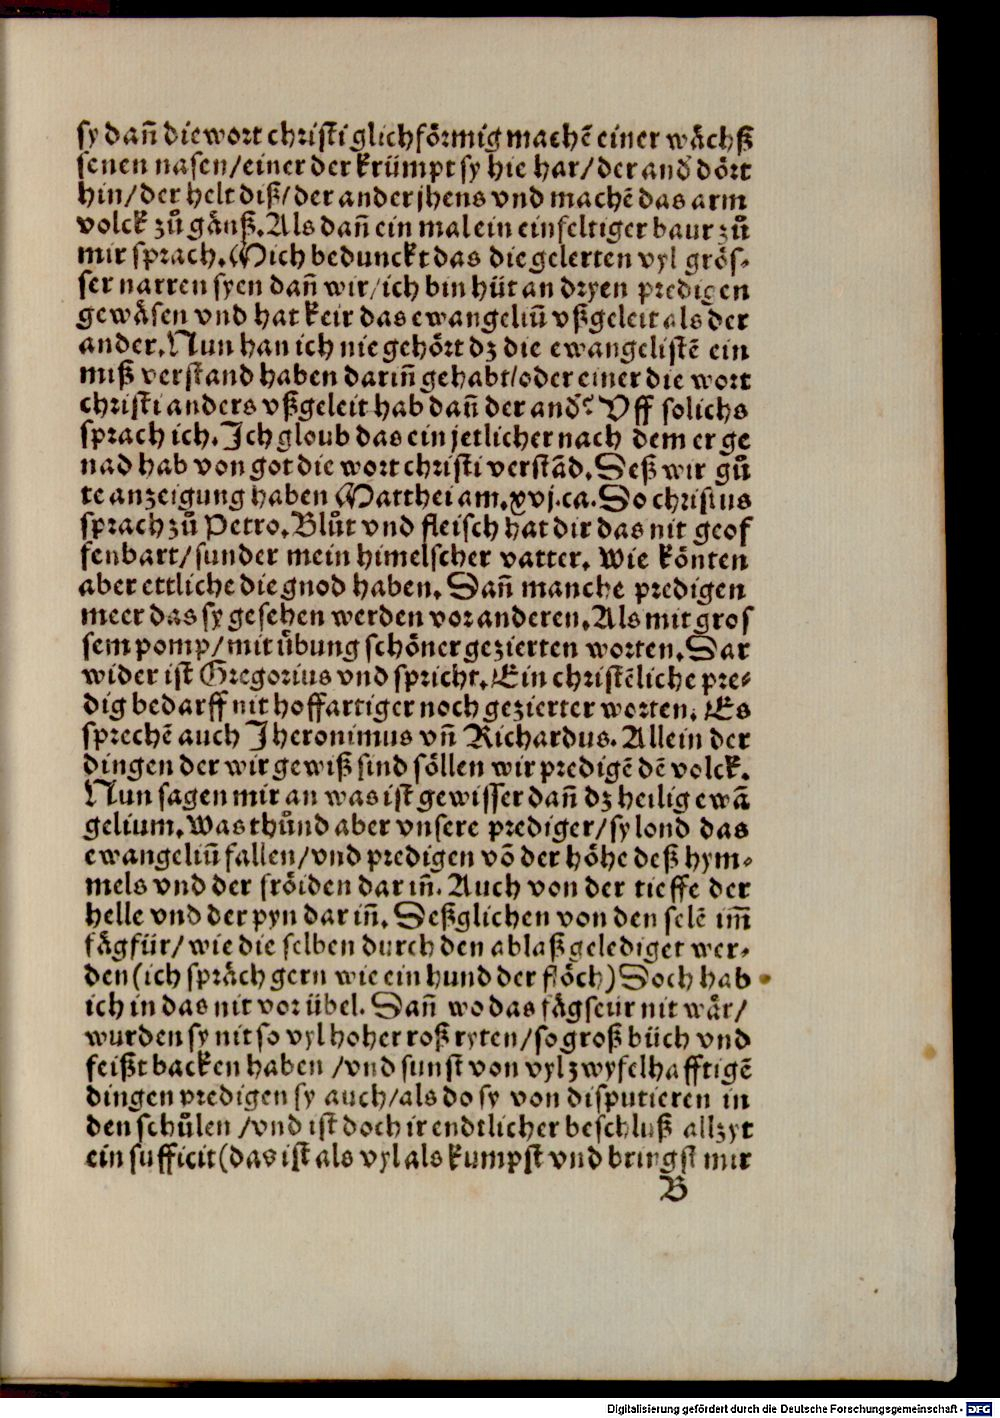 sy dañ die wort christi glichförmig machẽ einer wächß
senen nasen/einer der krümpt sy hie har/der and̕ dört
hin/der helt diß/der ander jhens vnd machẽ das arm
volck zů gänß. Als dañ ein mal ein einfeltiger baur zů
mir sprach. Mich bedunckt das die gelerten vyl grös⸗
ser narren syen dañ wir/ich bin hüt an dryen predigen
gewäsen vnd hat keir das ewangeliū vßgeleit als der
ander. Nun han ich nie gehört dz die ewangelistẽ ein
miß verstand haben dariñ gehabt/oder einer die wort
christi anders vßgeleit hab dañ der and̕. Vff solichs
sprach ich. Ich gloub das ein jetlicher nach dem er ge
nad hab von got die wort christi verstãd. Deß wir gů
te anzeigung haben Matthei am. xvj. ca. Do christus
sprach zů Petro. Blůt vnd fleisch hat dir das nit geof
fenbart/sunder mein himelscher vatter. Wie könten
aber ettliche die gnod haben. Dañ manche predigen
meer das sy gesehen werden vor anderen. Als mit gros
sem pomp/mit ůbung schöner gezierten worten. Dar
wider ist Gregorius vnd spricht. Ein christẽliche pre⸗
dig bedarff nit hoffartiger noch gezierter worten. Es
sprechẽ auch Jheronimus vñ Richardus. Allein der
dingen der wir gewiß sind söllen wir predigẽ dẽ volck.
Nun sagen mir an was ist gewisser dañ dz heilig ewã
gelium. Was thůnd aber vnsere prediger/sy lond das
ewangeliū fallen/vnd predigen võ der höhe deß hym⸗
mels vnd der fröiden dar iñ. Auch von der tieffe der
helle vnd der pyn dar iñ. Deßglichen von den selẽ im̃
fägfür/wie die selben durch den ablaß gelediget wer⸗
den (ich spräch gern wie ein hund der flöch) Doch hab
ich in das nit vor übel. Dañ wo das fägfeür nit wär/
wurden sy nit so vyl hoher roß ryten/so groß büch vnd
feißt backen haben /vnd sunst von vyl zwyfelhafftigẽ
dingen predigen sy auch/als do sy von disputieren in
den schůlen /vnd ist doch ir endtlicher beschluß allzyt
ein sufficit (das ist als vyl als kumpst vnd bringst mir
B
Digitalisierung gefördert durch die Deutsche Forschungsgemeinschaft - DFG